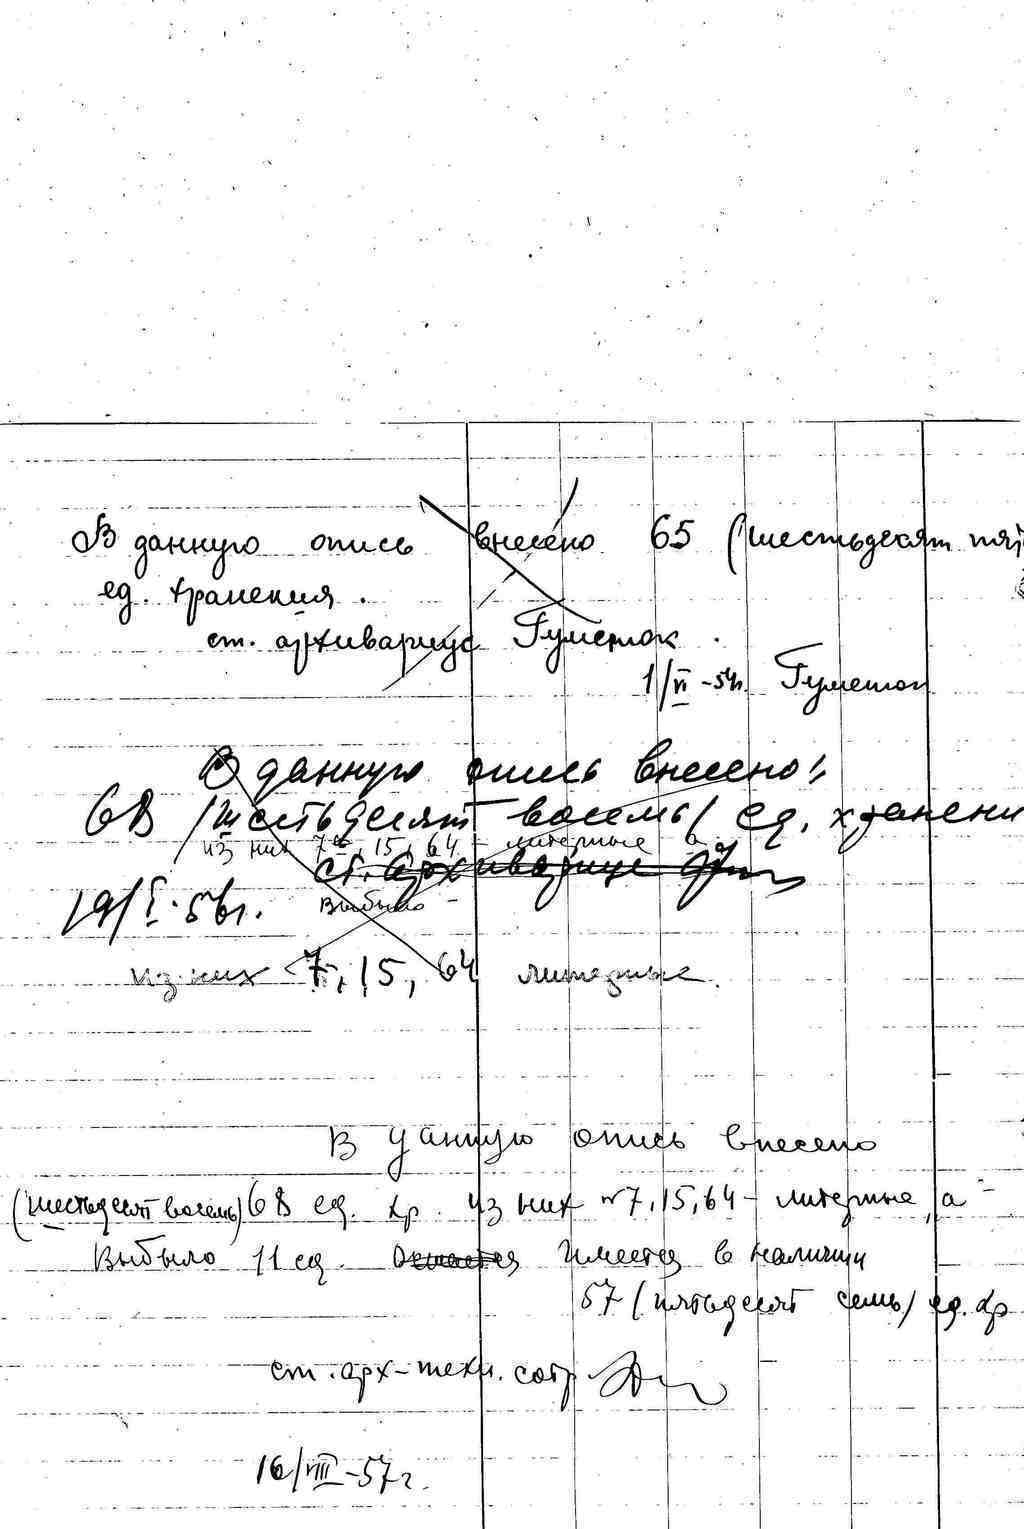 В данную опись внесено 65 (шестьдесят пят
ед. хранения.
ст. архивариус Гуменюк.
1/VI-54г. Гуменюк
В данную опись внесено:
68 /шестьдесят восемь/ ед. хранени
из них 7а, 15, 64 - литерные а
ст. архивариус
19/I.56г. Выбыло -
из них 7, 15, 64 литерные.
В данную опись внесено
(шестьдесят восемь) 68 ед. хр. из них №7, 15, 64 - литерные, а -
Выбыло 11 ед. имеется в наличии
57 /пятьдесят семь/ ед. хр
ст. арх-техн. сотр.
16/VIII-57г.